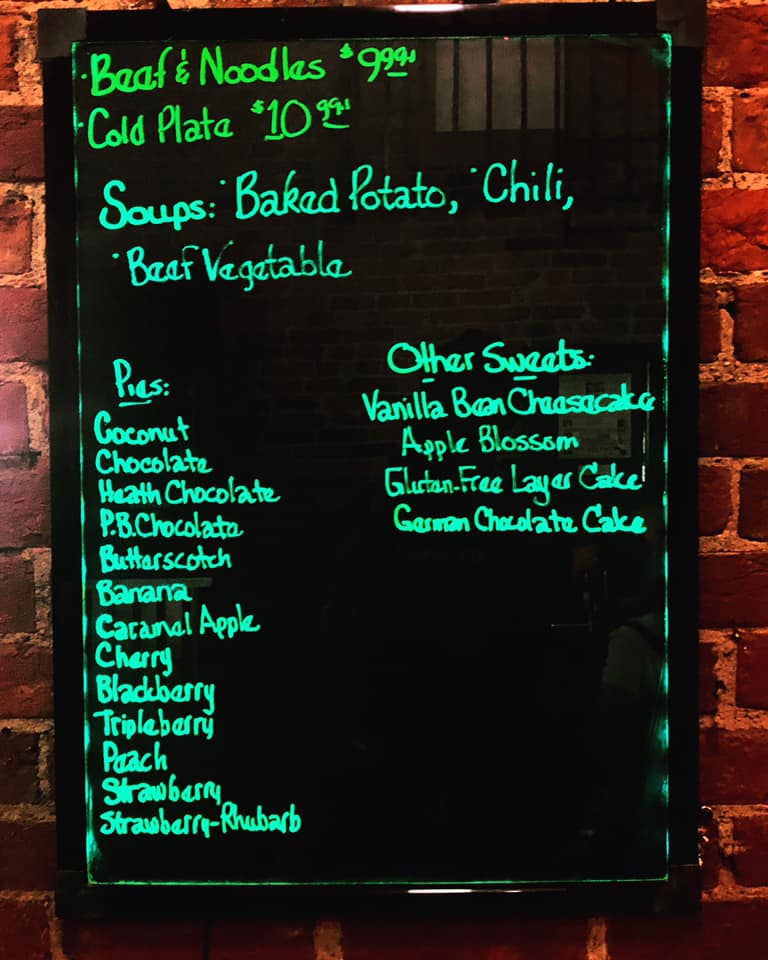 ·Beef & Noodles $9.99
·Cold Plate $10.99
Soups: ·Baked Potato, ·Chili,
·Beef Vegetable
Pies:
Coconut
Chocolate
Heath Chocolate
P.B. Chocolate
Butterscotch
Banana
Caramel Apple
Cherry
Blackberry
Tripleberry
Peach
Strawberry
Strawberry-Rhubarb
Other Sweets:
Vanilla Bean Cheesecake
Apple Blossom
Gluten-Free Layer Cake
German Chocolate Cake